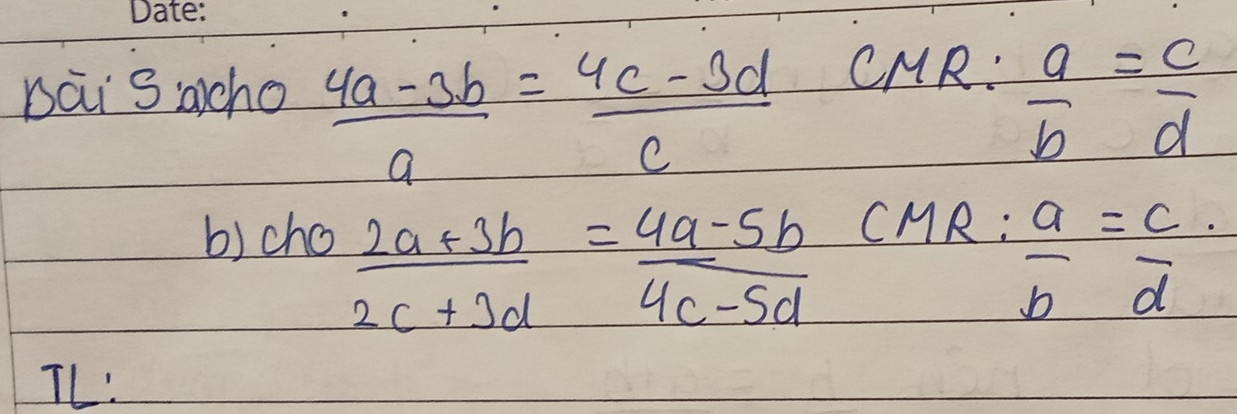 Date:
Bài 5 a) cho \frac{4a-3b}{a} = \frac{4c-3d}{c} CMR: \frac{a}{b} = \frac{c}{d}
b) cho \frac{2a+3b}{2c+3d} = \frac{4a-5b}{4c-5d} CMR: \frac{a}{b} = \frac{c}{d}.
TL: